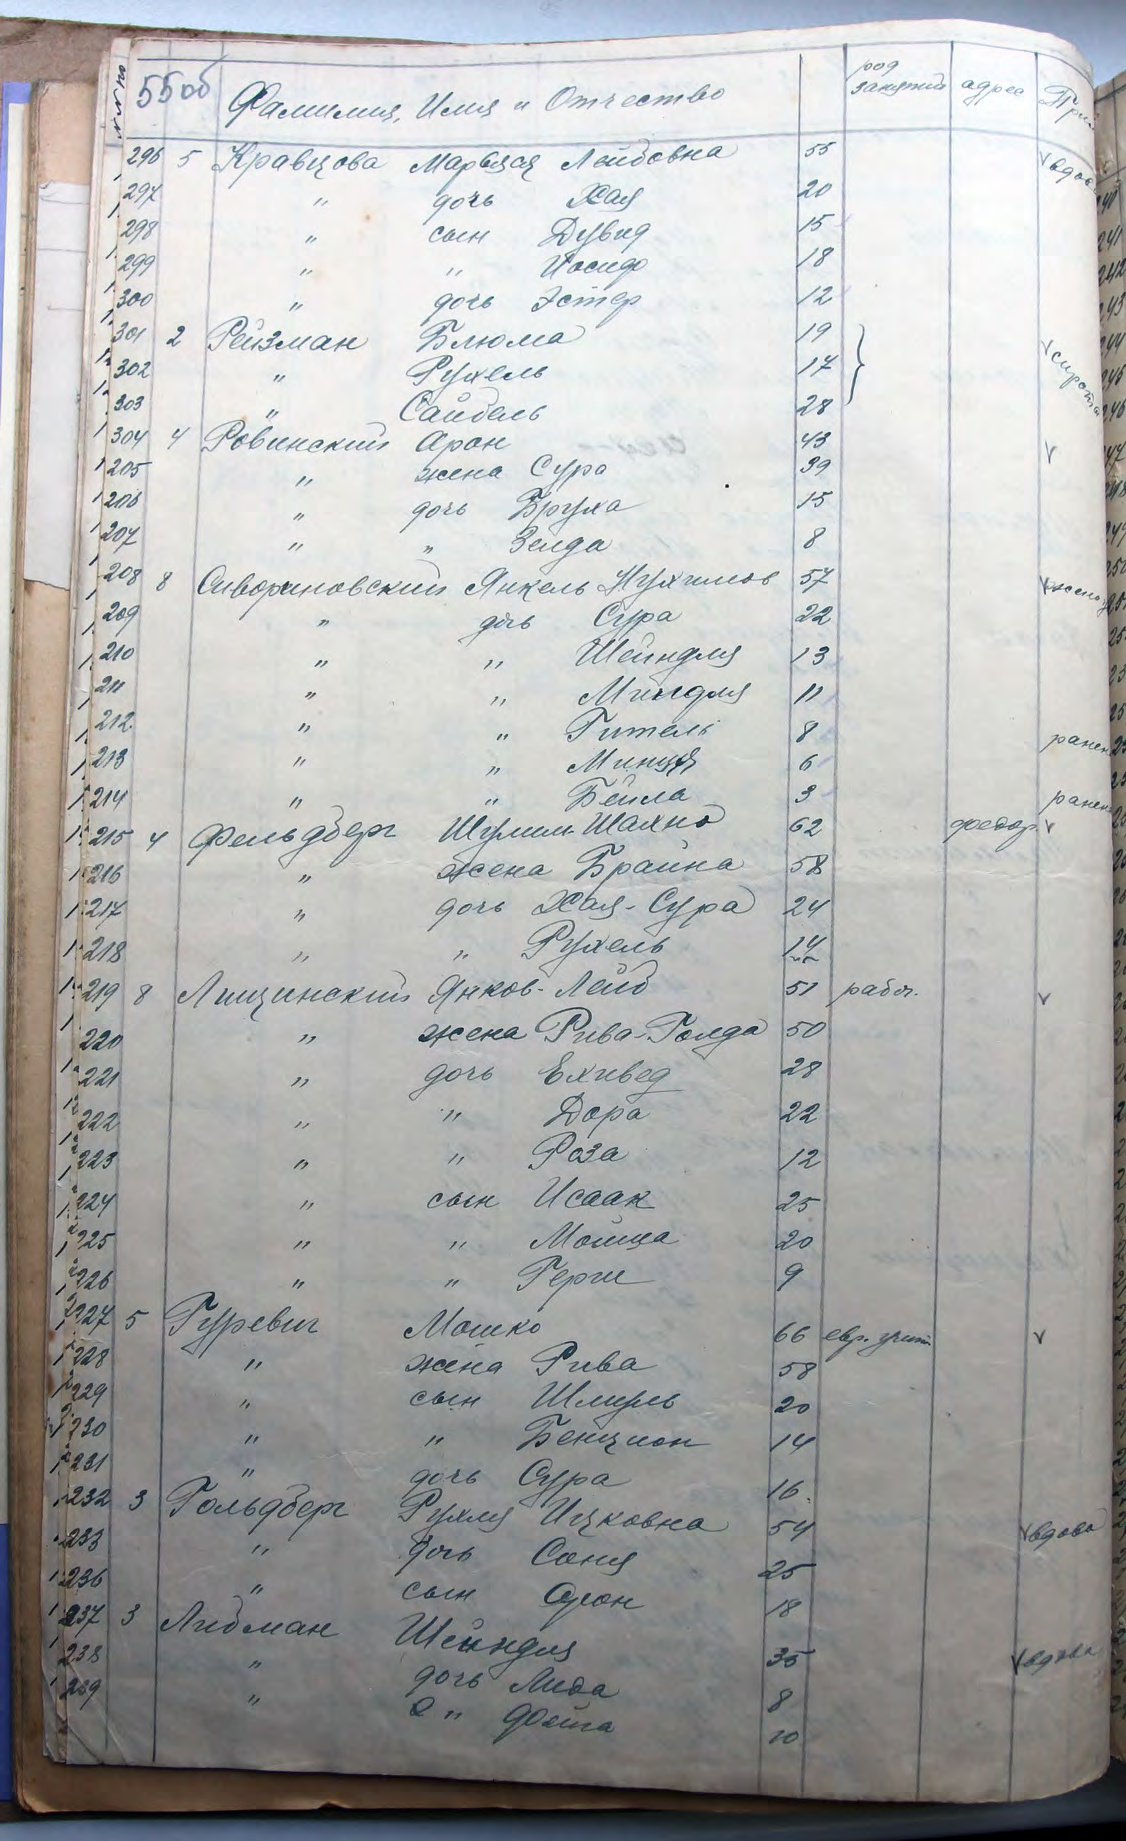 №№ по 55об Фамилия, Имя и Отчество род занятий адрес При
296 5 Кравцова Марьяся Лейбовна 55 вдов
297 " дочь Хая 20
298 " сын Дувид 15
299 " " Иосиф 18
300 " дочь Эстер 12
301 2 Рейзман Блюма 19
302 " Рухель 17 сирота
303 " Сайбель 28
304 4 Ровинский Арон 43
205 " жена Сура 39
206 " дочь Бруха 15
207 " " Зелда 8
208 8 Янкель Нухимов 57 жена
209 " дочь Сура 22
210 " " Шейндля 13
211 " " Миндля 11
212 " " Гитель 8 ранен
213 " " 6
214 " " Бейла 3 ранен
215 4 Фельдберг Шулим Шахно 62 федор.
216 " жена Брайна 58
217 " дочь Хая-Сура 24
218 " " Рухель 14
219 8 Лищинский Янков-Лейб 51 рабоч.
220 " жена Рива-Голда 50
221 " дочь Ехивед 28
222 " " Дора 22
223 " " Роза 12
224 " сын Исаак 25
225 " " Мойша 20
226 " " Герш 9
227 5 Гуревич Мошко 66 евр. учит.
228 " жена Рива 58
229 " сын Шмуль 20
230 " " Бенцион 14
231 " дочь Сура 16
232 3 Гольдберг Рухля Ицковна 54 вдова
233 " дочь Соня 25
236 " сын Арон 18
237 3 Либман Шейндля 35 вдова
238 " дочь Лиза 8
239 " " Фейга 10